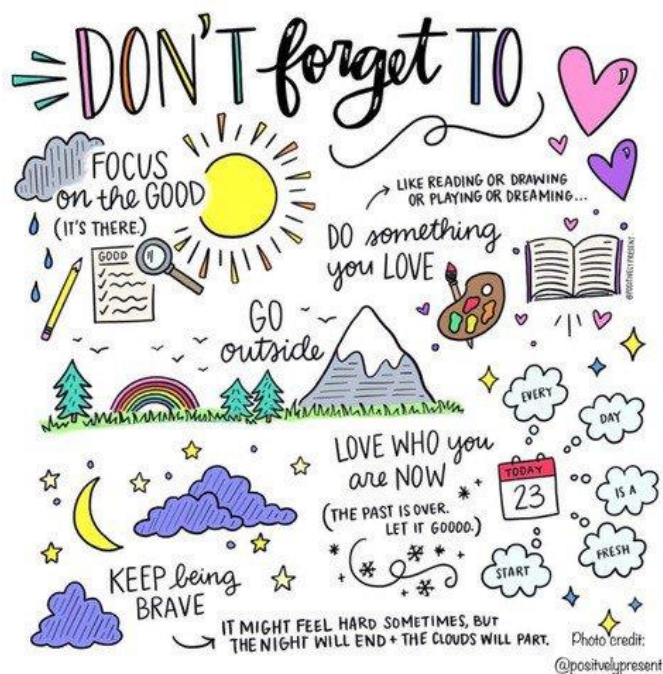 DON'T forget TO
FOCUS
on the GOOD
(IT'S THERE.)
GOOD
LIKE READING OR DRAWING
OR PLAYING OR DREAMING...
DO something
you LOVE
@POSITIVELYPRESENT
GO
outside
LOVE WHO you
are NOW
(THE PAST IS OVER.
LET IT GOOOO.)
EVERY
DAY
TODAY
23
IS A
FRESH
START
KEEP being
BRAVE
IT MIGHT FEEL HARD SOMETIMES, BUT
THE NIGHT WILL END + THE CLOUDS WILL PART.
Photo credit:
@positvelypresent